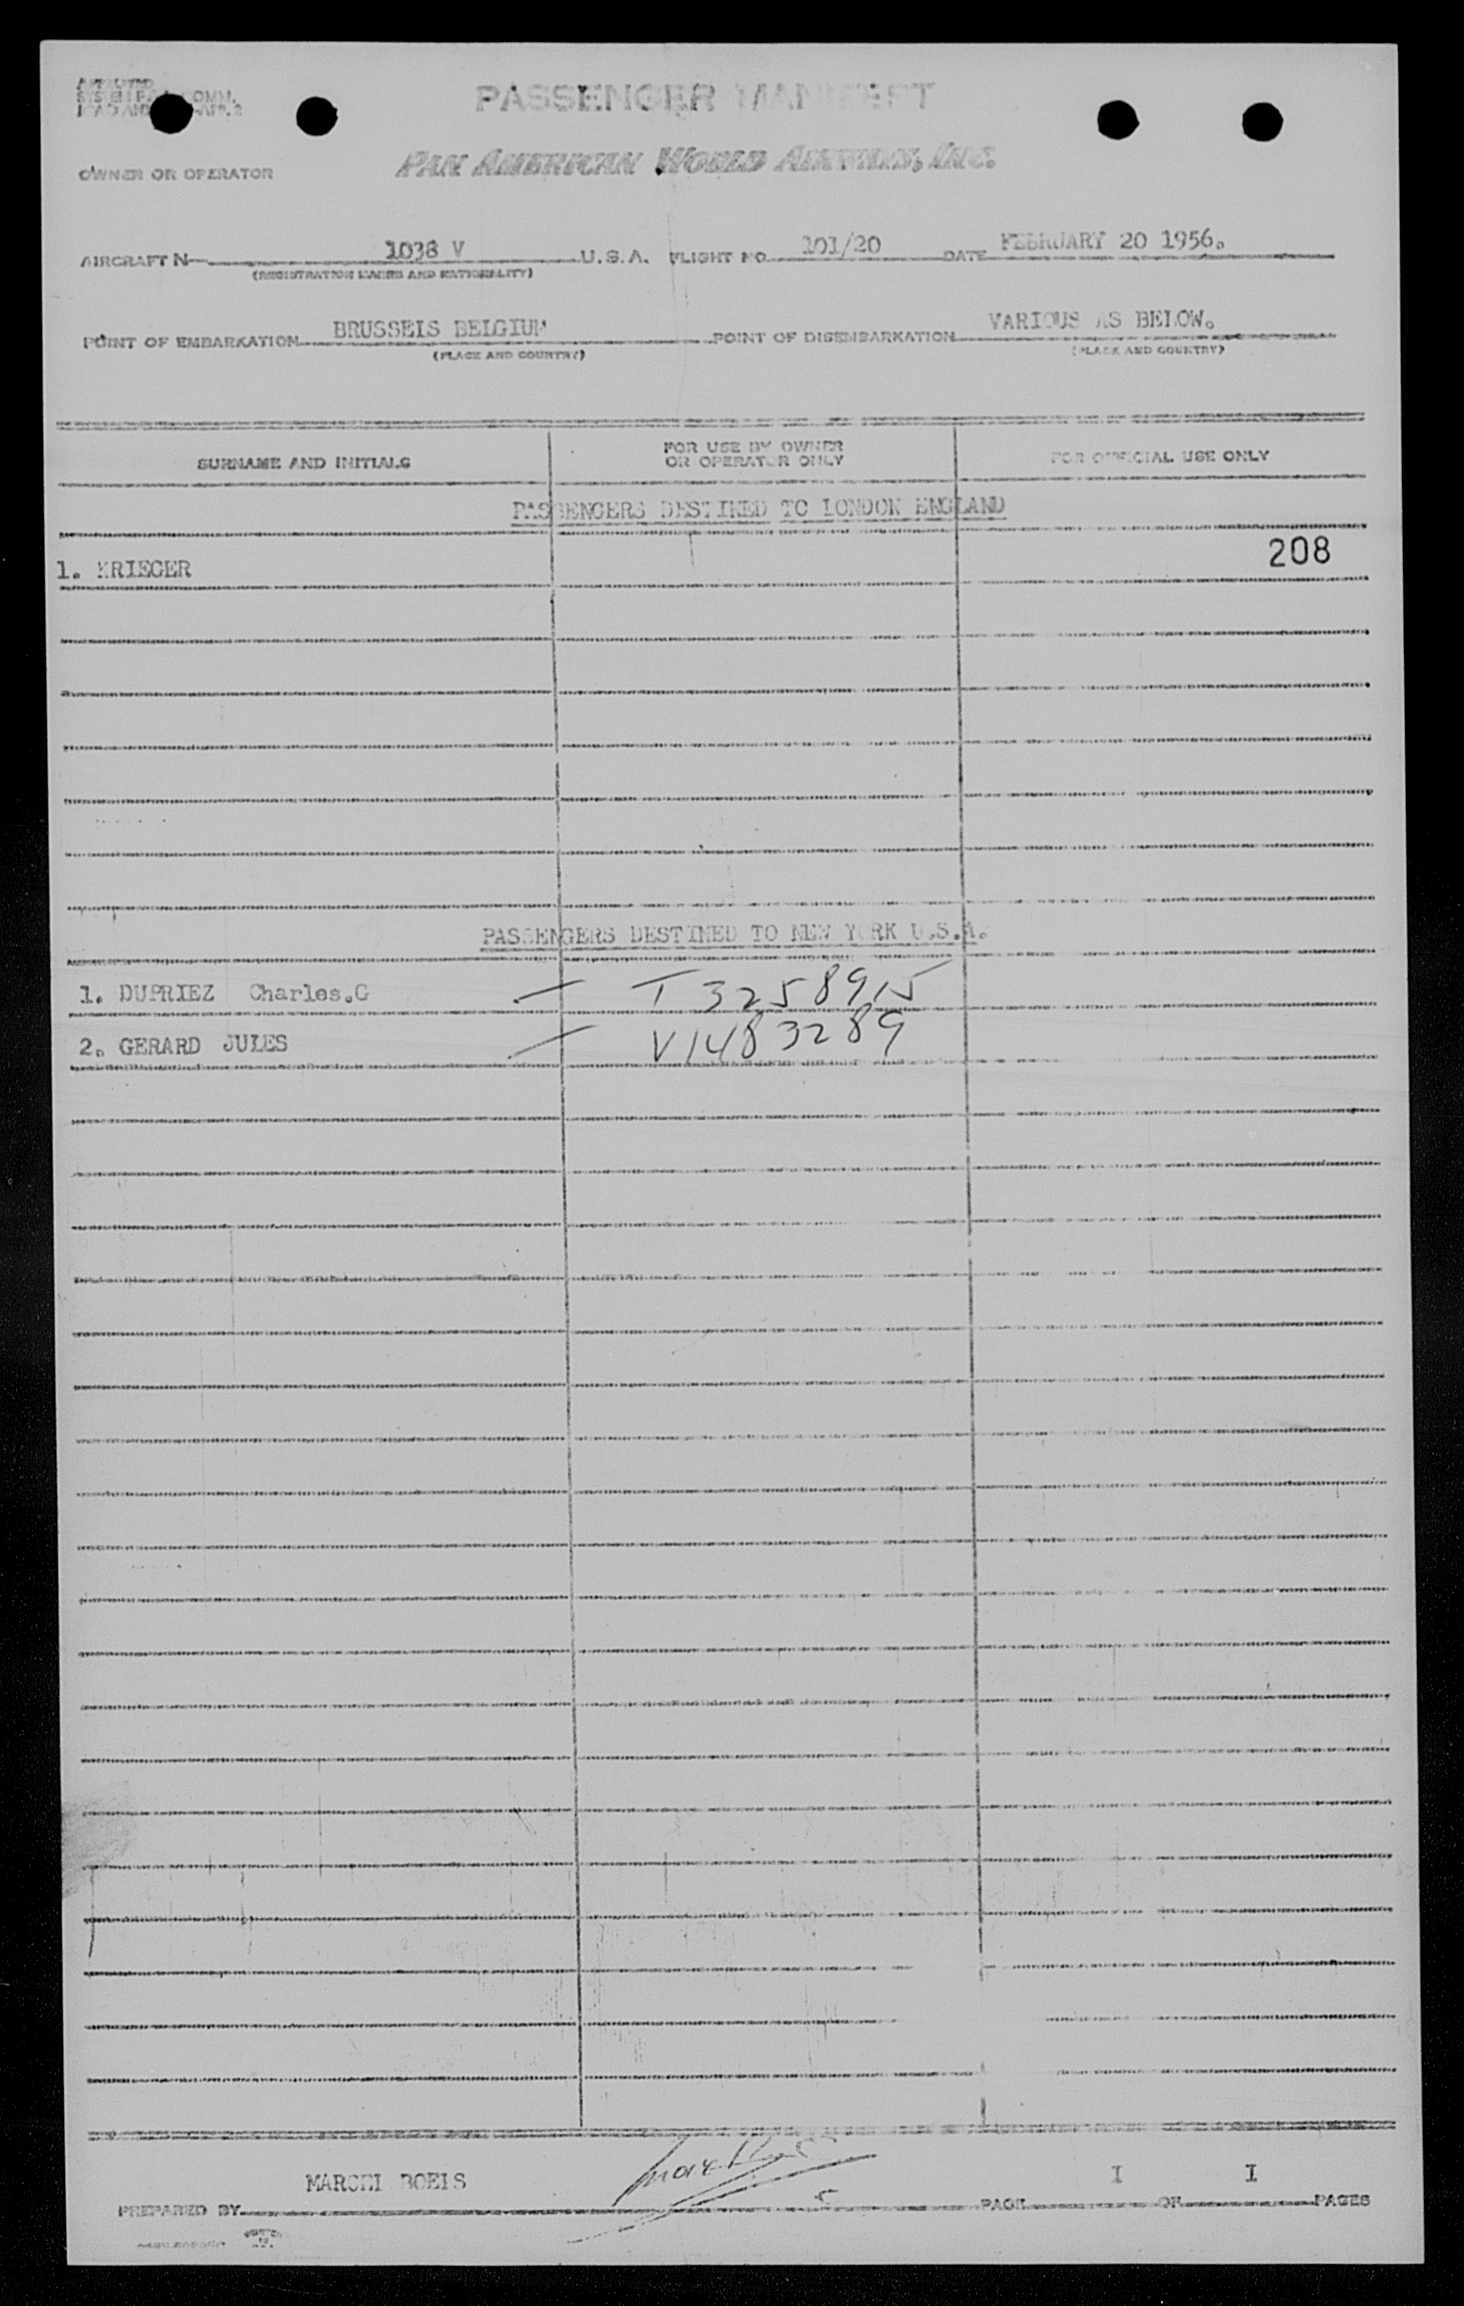 PASSENGER MANIFEST
PAN AMERICAN WORLD AIRWAYS, INC.
OWNER OR OPERATOR
AIRCRAFT N— 1038 V U.S.A. FLIGHT NO. 101/20 DATE FEBRUARY 20 1956.
(REGISTRATION MARKS AND NATIONALITY)
POINT OF EMBARKATION BRUSSELS BELGIUM POINT OF DISEMBARKATION VARIOUS AS BELOW.
(PLACE AND COUNTRY) (PLACE AND COUNTRY)
SURNAME AND INITIALS FOR USE BY OWNER OR OPERATOR ONLY FOR OFFICIAL USE ONLY
PASSENGERS DESTINED TO LONDON ENGLAND
208
1. KRIEGER
PASSENGERS DESTINED TO NEW YORK U.S.A.
1. DUPRIEZ Charles.G — T 3258915
2. GERARD JULES — V1483289
MARCEL BOELS
PREPARED BY PAGE I OF I PAGES